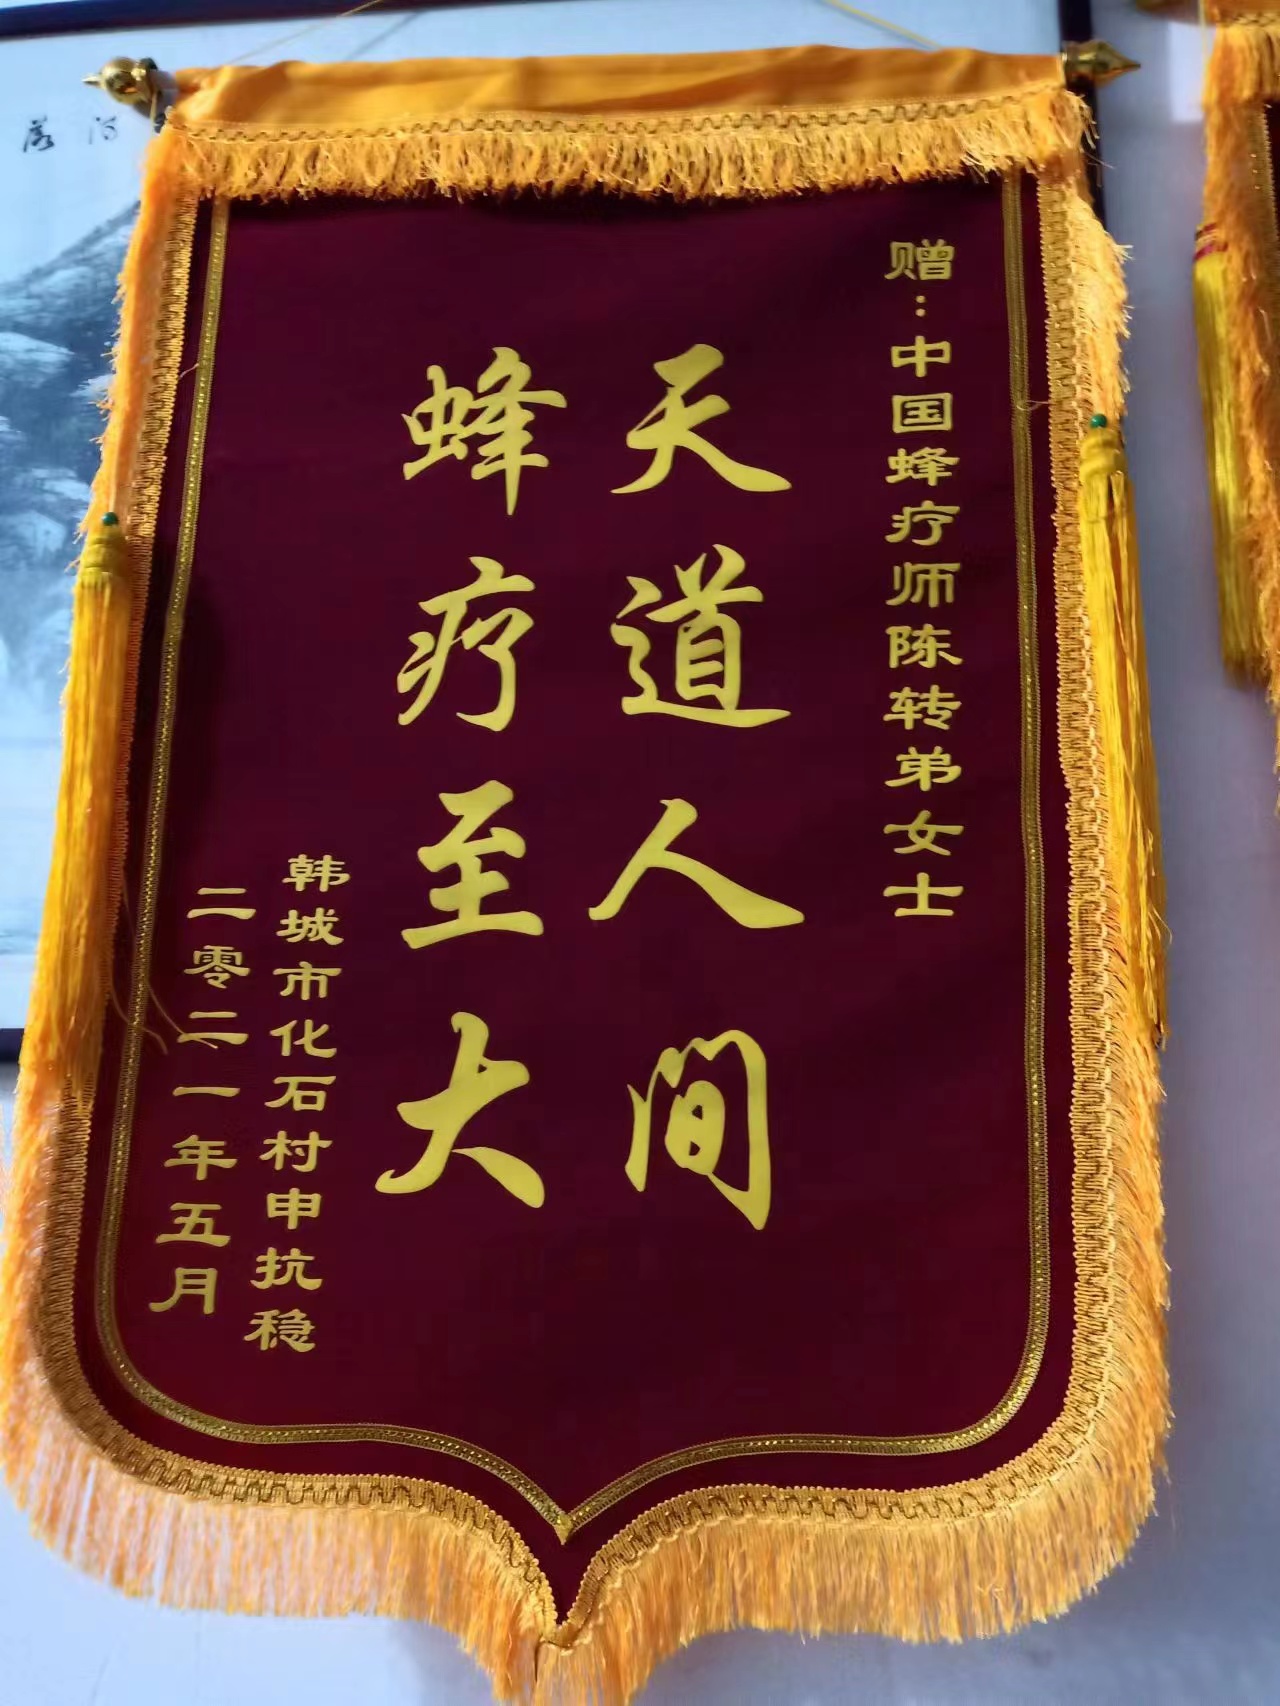 赠：中国蜂疗师陈转弟女士
天道人间
蜂疗至大
韩城市化石村申抗稳
二零二一年五月